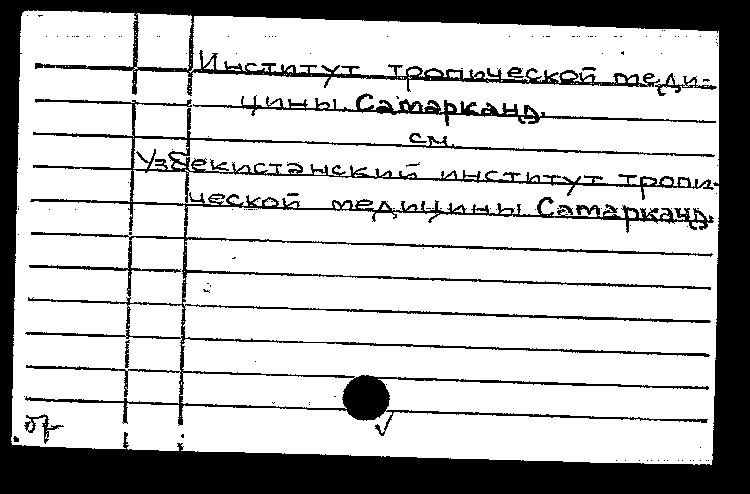 Институт тропической меди-
цины. Самарканд.
см.
Узбекистанский институт тропи-
ческой медицины. Самарканд.